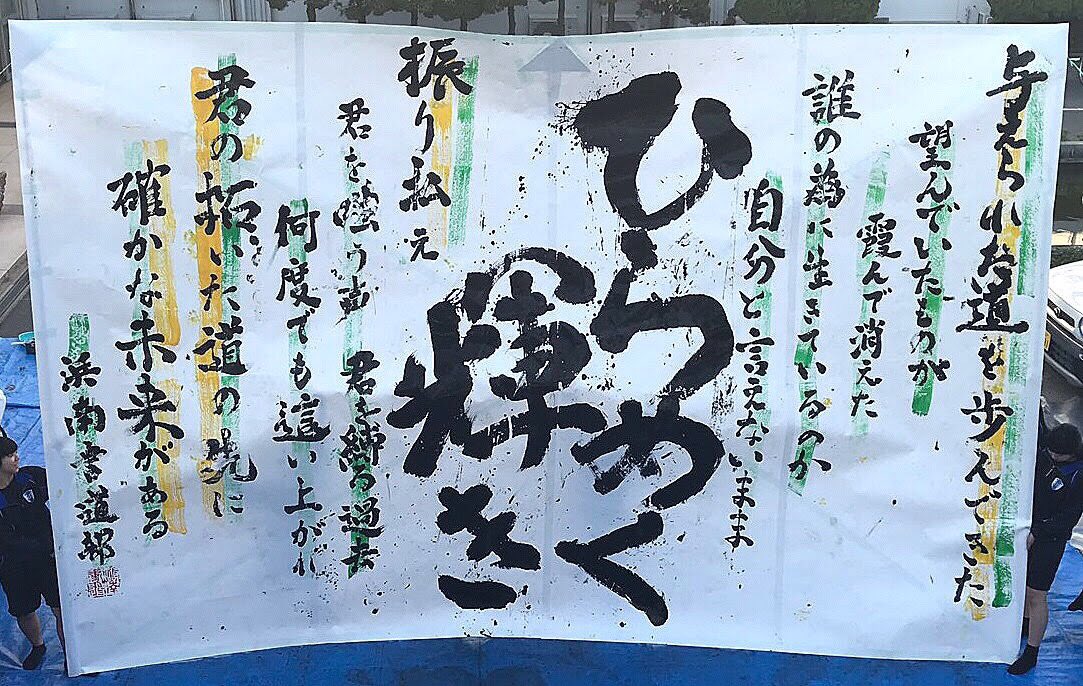 与えられた道を歩んできた
望んでいたものが
霞んで消えた
誰の為に生きているのか
自分と言えないまま
ひらめく
輝き
振り払え
君を嗤う声
君を縛る過去
何度でも這い上がれ
君の拓いた道の先に
確かな未来がある
浜南書道部